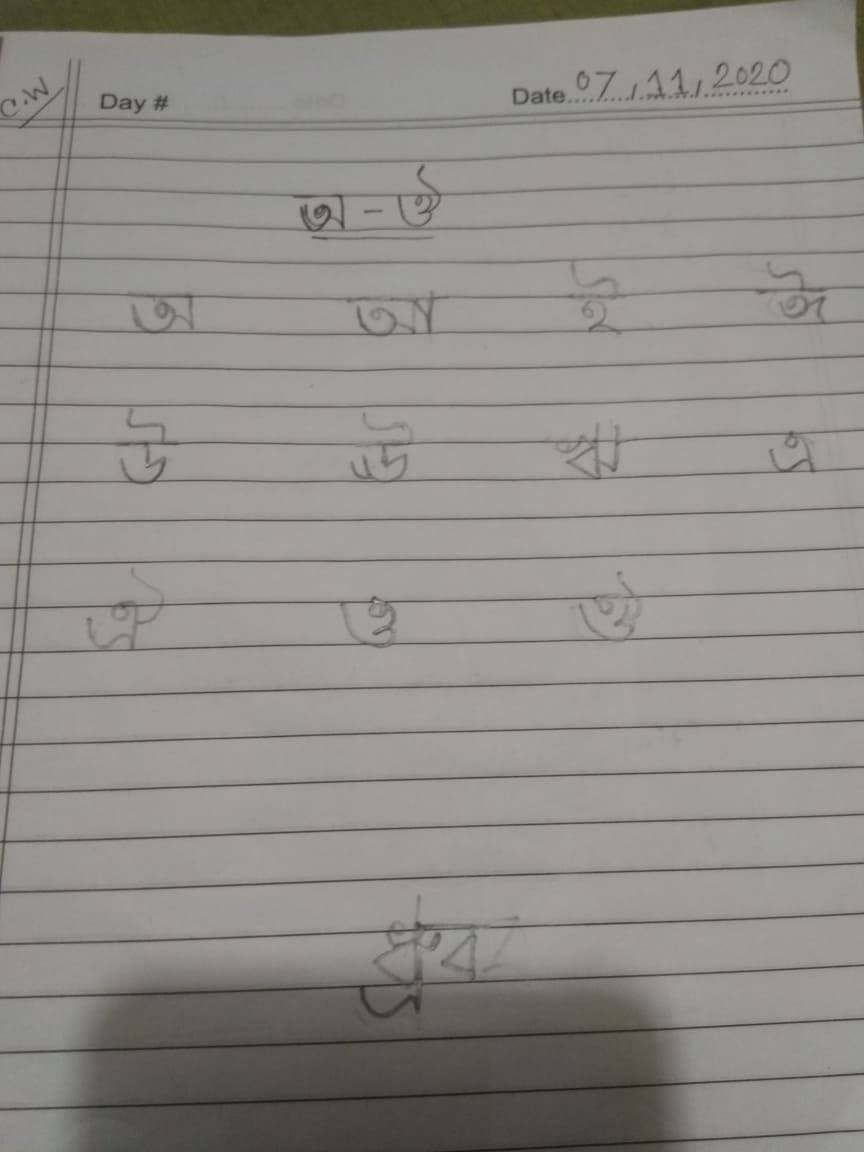 C.W
Day # Date 07, 11, 2020
অ - ঔ
অ আ ই ঈ
উ ঊ ঋ এ
ঐ ও ঔ